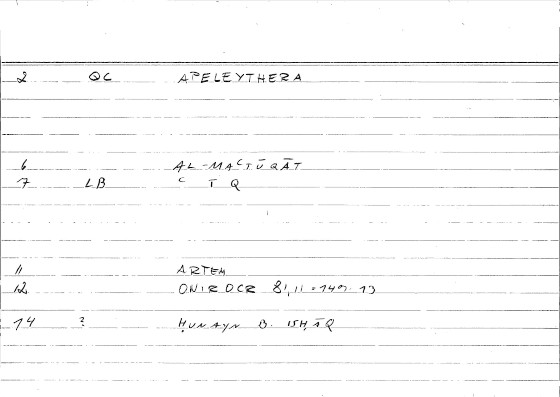 2 QC APELEYTHERA
6 AL-MACTŪQĀT
7 LB C T Q
11 ARTEM
12 ONIROCR 81,11 = 149.13
14 ? ḤUNAYN B. ISḤĀQ